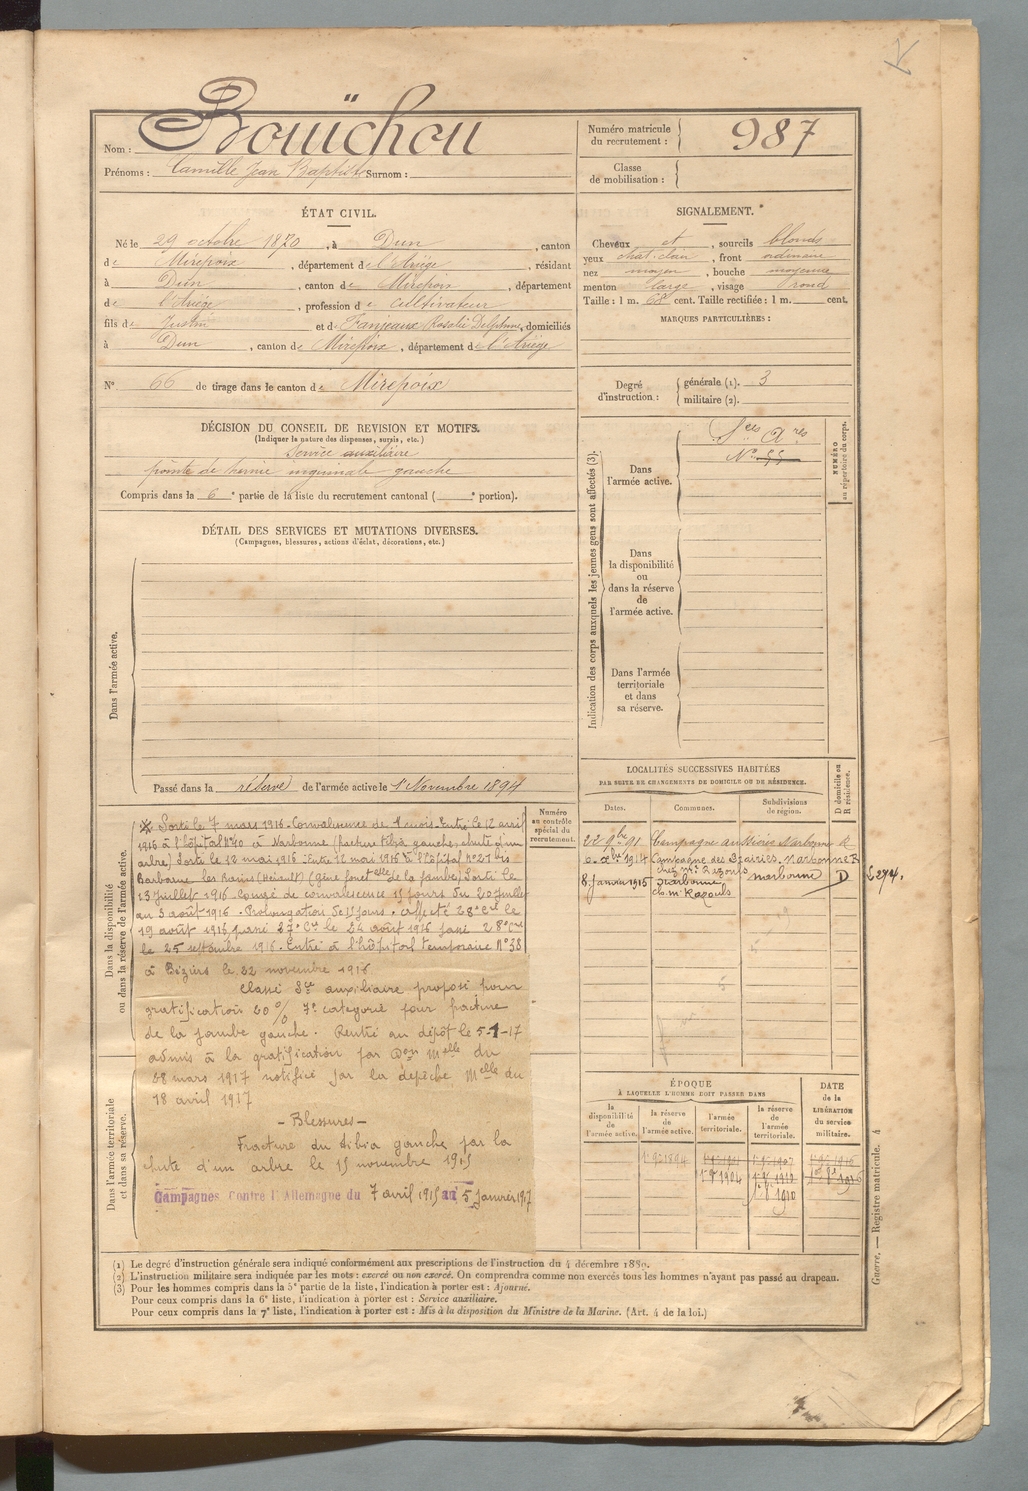 Nom : Bouïchou
Prénoms : Camille Jean Baptiste Surnom :
Numéro matricule du recrutement : 987
Classe de mobilisation :
ÉTAT CIVIL.
Né le 29 octobre 1870, à Dun, canton
de Mirepoix, département de l'Ariège, résidant
à Dun, canton de Mirepoix, département
de l'Ariège, profession de cultivateur
fils de Justin et de Fanjeaux Rosalie Delphine, domiciliés
à Dun, canton de Mirepoix, département de l'Ariège
N° 66 de tirage dans le canton de Mirepoix
SIGNALEMENT.
Cheveux et, sourcils blonds
yeux chat. clair, front ordinaire
nez moyen, bouche moyenne
menton large, visage rond
Taille : 1 m. 68 cent. Taille rectifiée : 1 m. cent.
MARQUES PARTICULIÈRES :
Degré d'instruction : générale (1). 3
militaire (2).
DÉCISION DU CONSEIL DE REVISION ET MOTIFS.
(Indiquer la nature des dispenses, sursis, etc.)
Service auxiliaire
pointe de hernie inguinale gauche
Compris dans la 6e partie de la liste du recrutement cantonal (e portion).
DÉTAIL DES SERVICES ET MUTATIONS DIVERSES.
(Campagnes, blessures, actions d'éclat, décorations, etc.)
Dans l'armée active.
Passé dans la réserve de l'armée active le 1er Novembre 1894
Indication des corps auxquels les jeunes gens sont affectés (3).
Dans l'armée active.
Sces Ares
N° 55
NUMÉRO au répertoire du corps.
Dans la disponibilité ou dans la réserve de l'armée active.
Dans l'armée territoriale et dans sa réserve.
Dans la disponibilité ou dans la réserve de l'armée active.
Numéro au contrôle spécial du recrutement.
Sorti le 7 mars 1916. Convalescence de 1 mois. Entré le 12 avril
1916 à l'hôpital N°40 à Narbonne (fracture tibia gauche, chute d'un
arbre) Sorti le 12 mai 1916. Entré 12 mai 1916 à l'hôpital n°27 bis
(Hérault) (Gêne fonctelle de la jambe) Sorti le
13 juillet 1916. Congé de convalescence 15 jours du 20 juillet
au 3 août 1916. Prolongation de 15 jours. affecté 28e le
19 août 1916 passé 27e le 24 août 1916 passé 28e
le 25 septembre 1916. Entré à l'hôpital temporaire N°38
à Béziers le 22 novembre 1916
Classé Sce auxiliaire proposé pour
gratification 20% 7e catégorie pour fracture
de la jambe gauche. Rentré au dépôt le 5-1-17
admis à la gratification par Don Melle du
28 mars 1917 notifié par la dépêche Melle du
18 avril 1917
- Blessures -
Fracture du tibia gauche par la
chute d'un arbre le 15 novembre 1915
Campagnes contre l'Allemagne du 7 avril 1915 au 5 janvier 1917
Dans l'armée territoriale et dans sa réserve.
LOCALITÉS SUCCESSIVES HABITÉES
PAR SUITE DE CHANGEMENTS DE DOMICILE OU DE RÉSIDENCE.
Dates. Communes. Subdivisions de région. D domicile ou R résidence.
22 9bre 91 Campagne Narbonne R
1914 Campagne des Prairies. Narbonne R
chez Mr Razouls
8 Janvier 1915 Narbonne Narbonne D
ch. Mr Razouls
ÉPOQUE
À LAQUELLE L'HOMME DOIT PASSER DANS
la disponibilité de l'armée active.
la réserve de l'armée active.
l'armée territoriale.
la réserve de l'armée territoriale.
DATE de la LIBÉRATION du service militaire.
1er 9bre 1894
1er 9bre 1904
1910
Guerre. — Registre matricule. 4
(1) Le degré d'instruction générale sera indiqué conformément aux prescriptions de l'instruction du 4 décembre 1889.
(2) L'instruction militaire sera indiquée par les mots : exercé ou non exercé. On comprendra comme non exercés tous les hommes n'ayant pas passé au drapeau.
(3) Pour les hommes compris dans la 5e partie de la liste, l'indication à porter est : Ajourné.
Pour ceux compris dans la 6e liste, l'indication à porter est : Service auxiliaire.
Pour ceux compris dans la 7e liste, l'indication à porter est : Mis à la disposition du Ministre de la Marine. (Art. 4 de la loi.)